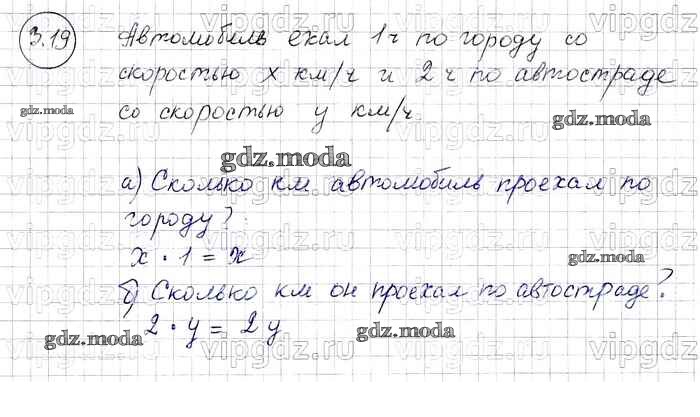 3.19 Автомобиль ехал 1 ч по городу со
скоростью x км/ч и 2 ч по автостраде
gdz.moda
со скоростью y км/ч.
gdz.moda
gdz.moda
а) Сколько км автомобиль проехал по
городу?
x · 1 = x
gdz.moda
б) Сколько км он проехал по автостраде?
2 · y = 2y
gdz.moda
gdz.moda
vipgdz.com